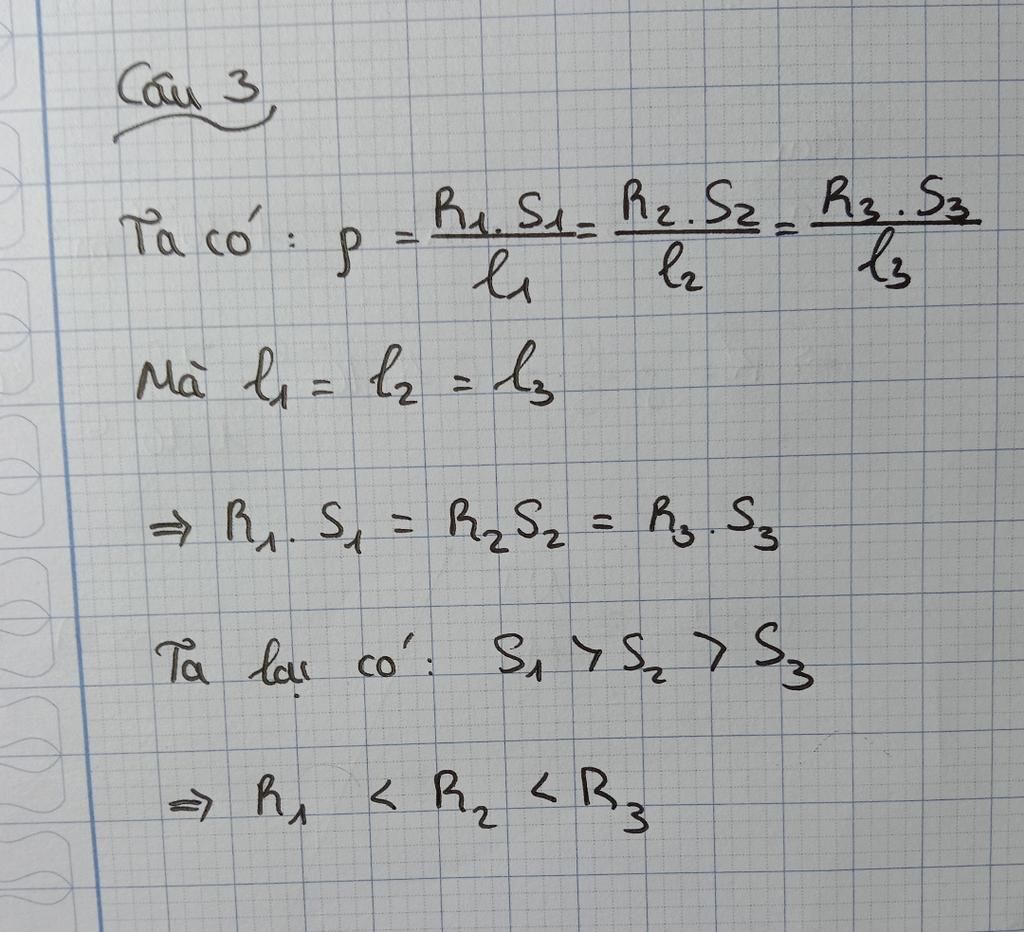 Câu 3
Ta có: ρ = R₁.S₁/l₁ = R₂.S₂/l₂ = R₃.S₃/l₃
Mà l₁ = l₂ = l₃
⇒ R₁. S₁ = R₂S₂ = R₃.S₃
Ta lại có: S₁ > S₂ > S₃
⇒ R₁ < R₂ < R₃